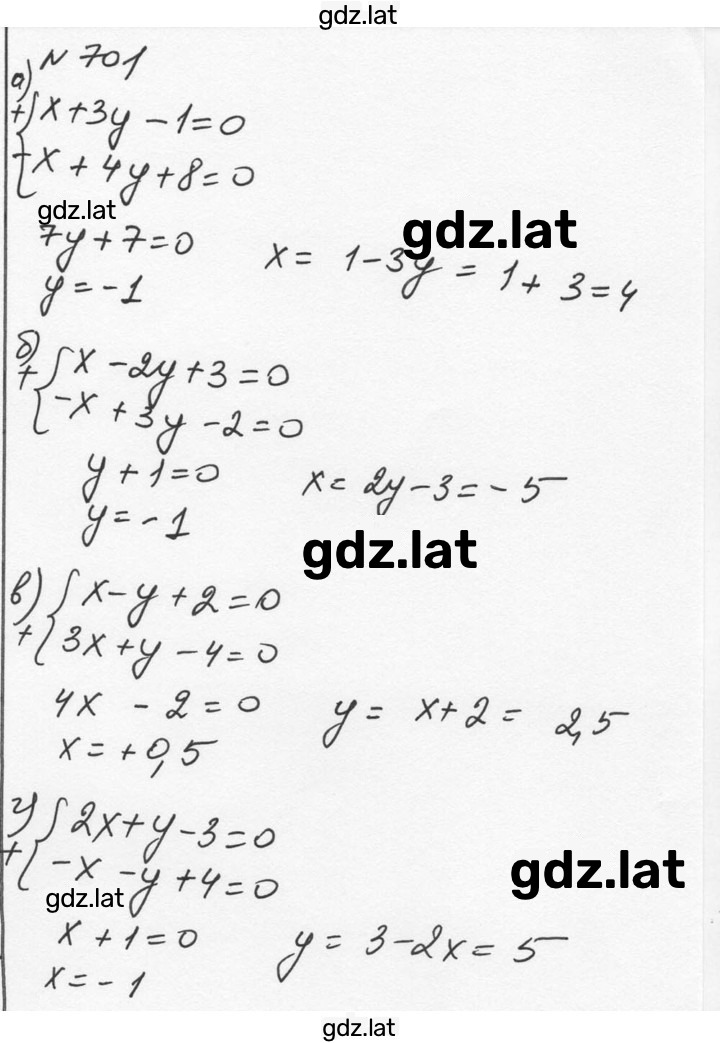 gdz.lat
N 701
а)
+ { x + 3y - 1 = 0
-x + 4y + 8 = 0
gdz.lat
7y + 7 = 0 x = 1 - 3y = 1 + 3 = 4
gdz.lat
y = -1
б)
+ { x - 2y + 3 = 0
-x + 3y - 2 = 0
y + 1 = 0 x = 2y - 3 = -5
y = -1
gdz.lat
в) { x - y + 2 = 0
+ 3x + y - 4 = 0
4x - 2 = 0 y = x + 2 = 2,5
x = +0,5
г) { 2x + y - 3 = 0
+ -x - y + 4 = 0
gdz.lat
gdz.lat
x + 1 = 0 y = 3 - 2x = 5
x = -1
gdz.lat